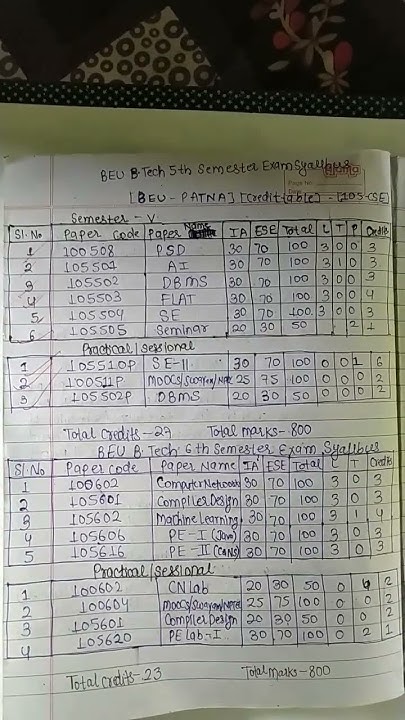 BEU B.Tech 5th Semester Exam Syallbus
[BEU - PATNA] [Credit table] - [105-CSE]
Semester - V
Sl. No Paper Code Paper Name IA ESE Total L T P Credits
1 100508 PSD 30 70 100 3 0 0 3
2 105501 AI 30 70 100 3 1 0 3
3 105502 DBMS 30 70 100 3 0 0 3
4 105503 FLAT 30 70 100 3 0 0 4
5 105504 SE 30 70 100 3 0 0 3
6 105505 Seminar 20 30 50 2 1
Practical/Sessional
1 105510P SE-II 30 70 100 0 0 1 6
2 100511P MOOCs/Swayam/NPTEL 25 75 100 0 0 0 2
3 105502P DBMS 20 30 50 0 0 0 2
Total Credits - 27 Total marks - 800
BEU B.Tech 6th Semester Exam Syallbus
Sl. No Paper Code Paper Name IA ESE Total L T Credits
1 100602 Computer Network 30 70 100 3 0 3
2 105601 Compiler Design 30 70 100 3 0 3
3 105602 Machine Learning 30 70 100 3 1 4
4 105606 PE-I (Java) 30 70 100 3 0 3
5 105616 PE-II (C&NS) 30 70 100 3 0 3
Practical/Sessional
1 100602 CN Lab 20 30 50 0 2
2 100604 MOOCs/Swayam/NPTEL 25 75 100 0 0 2
3 105601 Compiler Design 20 30 50 0 0 2
4 105620 PE Lab-I 30 70 100 0 2 1
Total Credits - 23 Total Marks - 800